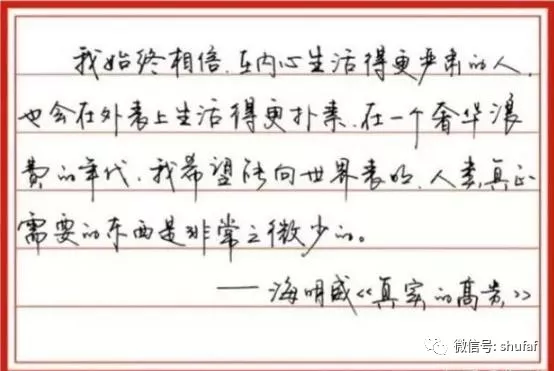 我始终相信,在内心生活得更严肃的人,
也会在外表上生活得更朴素,在一个奢华浪
费的年代,我希望能向世界表明,人类真正
需要的东西是非常之微少的。
——海明威《真实的高贵》
微信号: shufaf